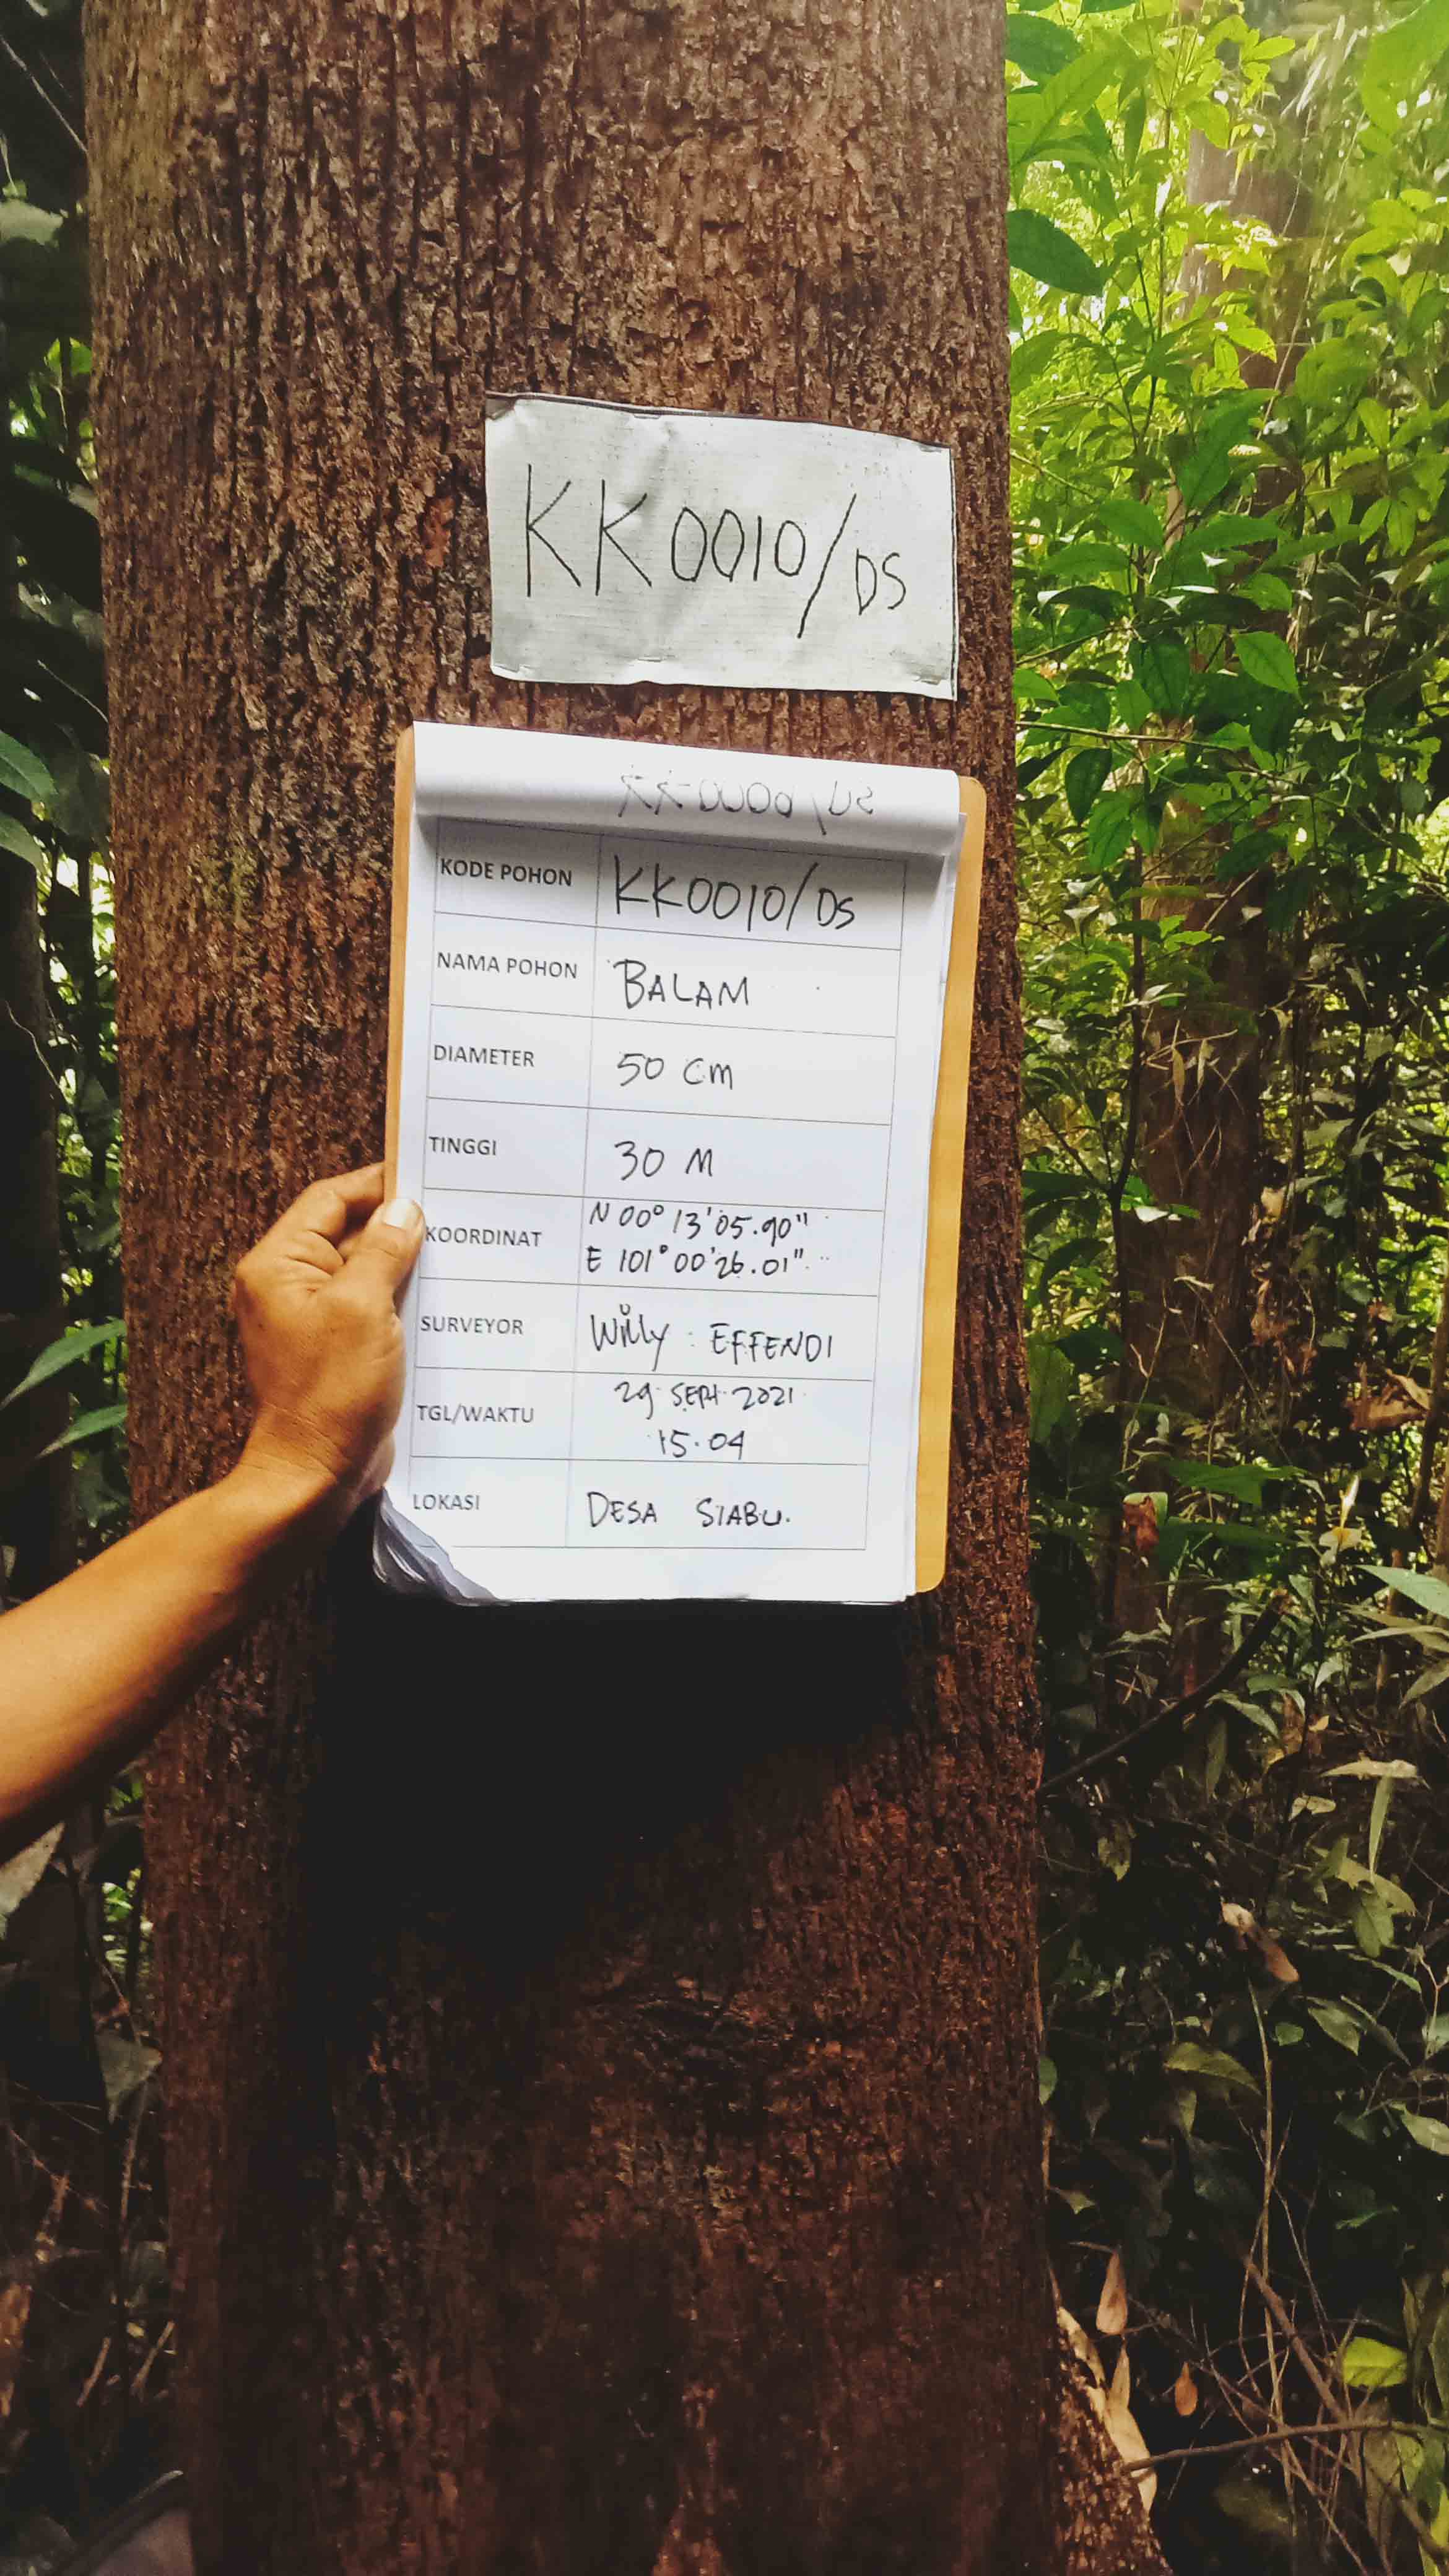 KK0010/DS
KODE POHON KK0010/DS
NAMA POHON BALAM
DIAMETER 50 cm
TINGGI 30 M
KOORDINAT N 00° 13'05.90"
E 101° 00'26.01"
SURVEYOR Willy : EFFENDI
TGL/WAKTU 29 SEPT 2021
15.04
LOKASI DESA SIABU.